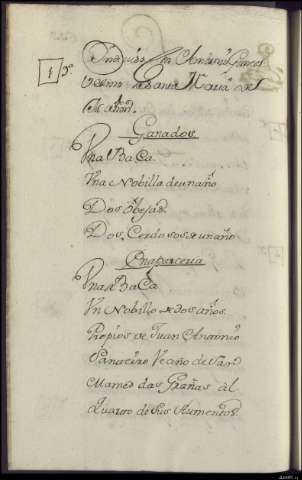 1 Yndividuo Antonio Garcia
Vezino de Santa Maria del
Ganados
Vna Baca
Vna Nobilla de un año
Dos Obejas
Dos Cerdosos de un año
En aparceria
Vna Baca
Vn Nobillo de dos años
Propios de Juan Antonio
Vecino de San
Mamed das Grañas al
Quarto de sus Aumentos